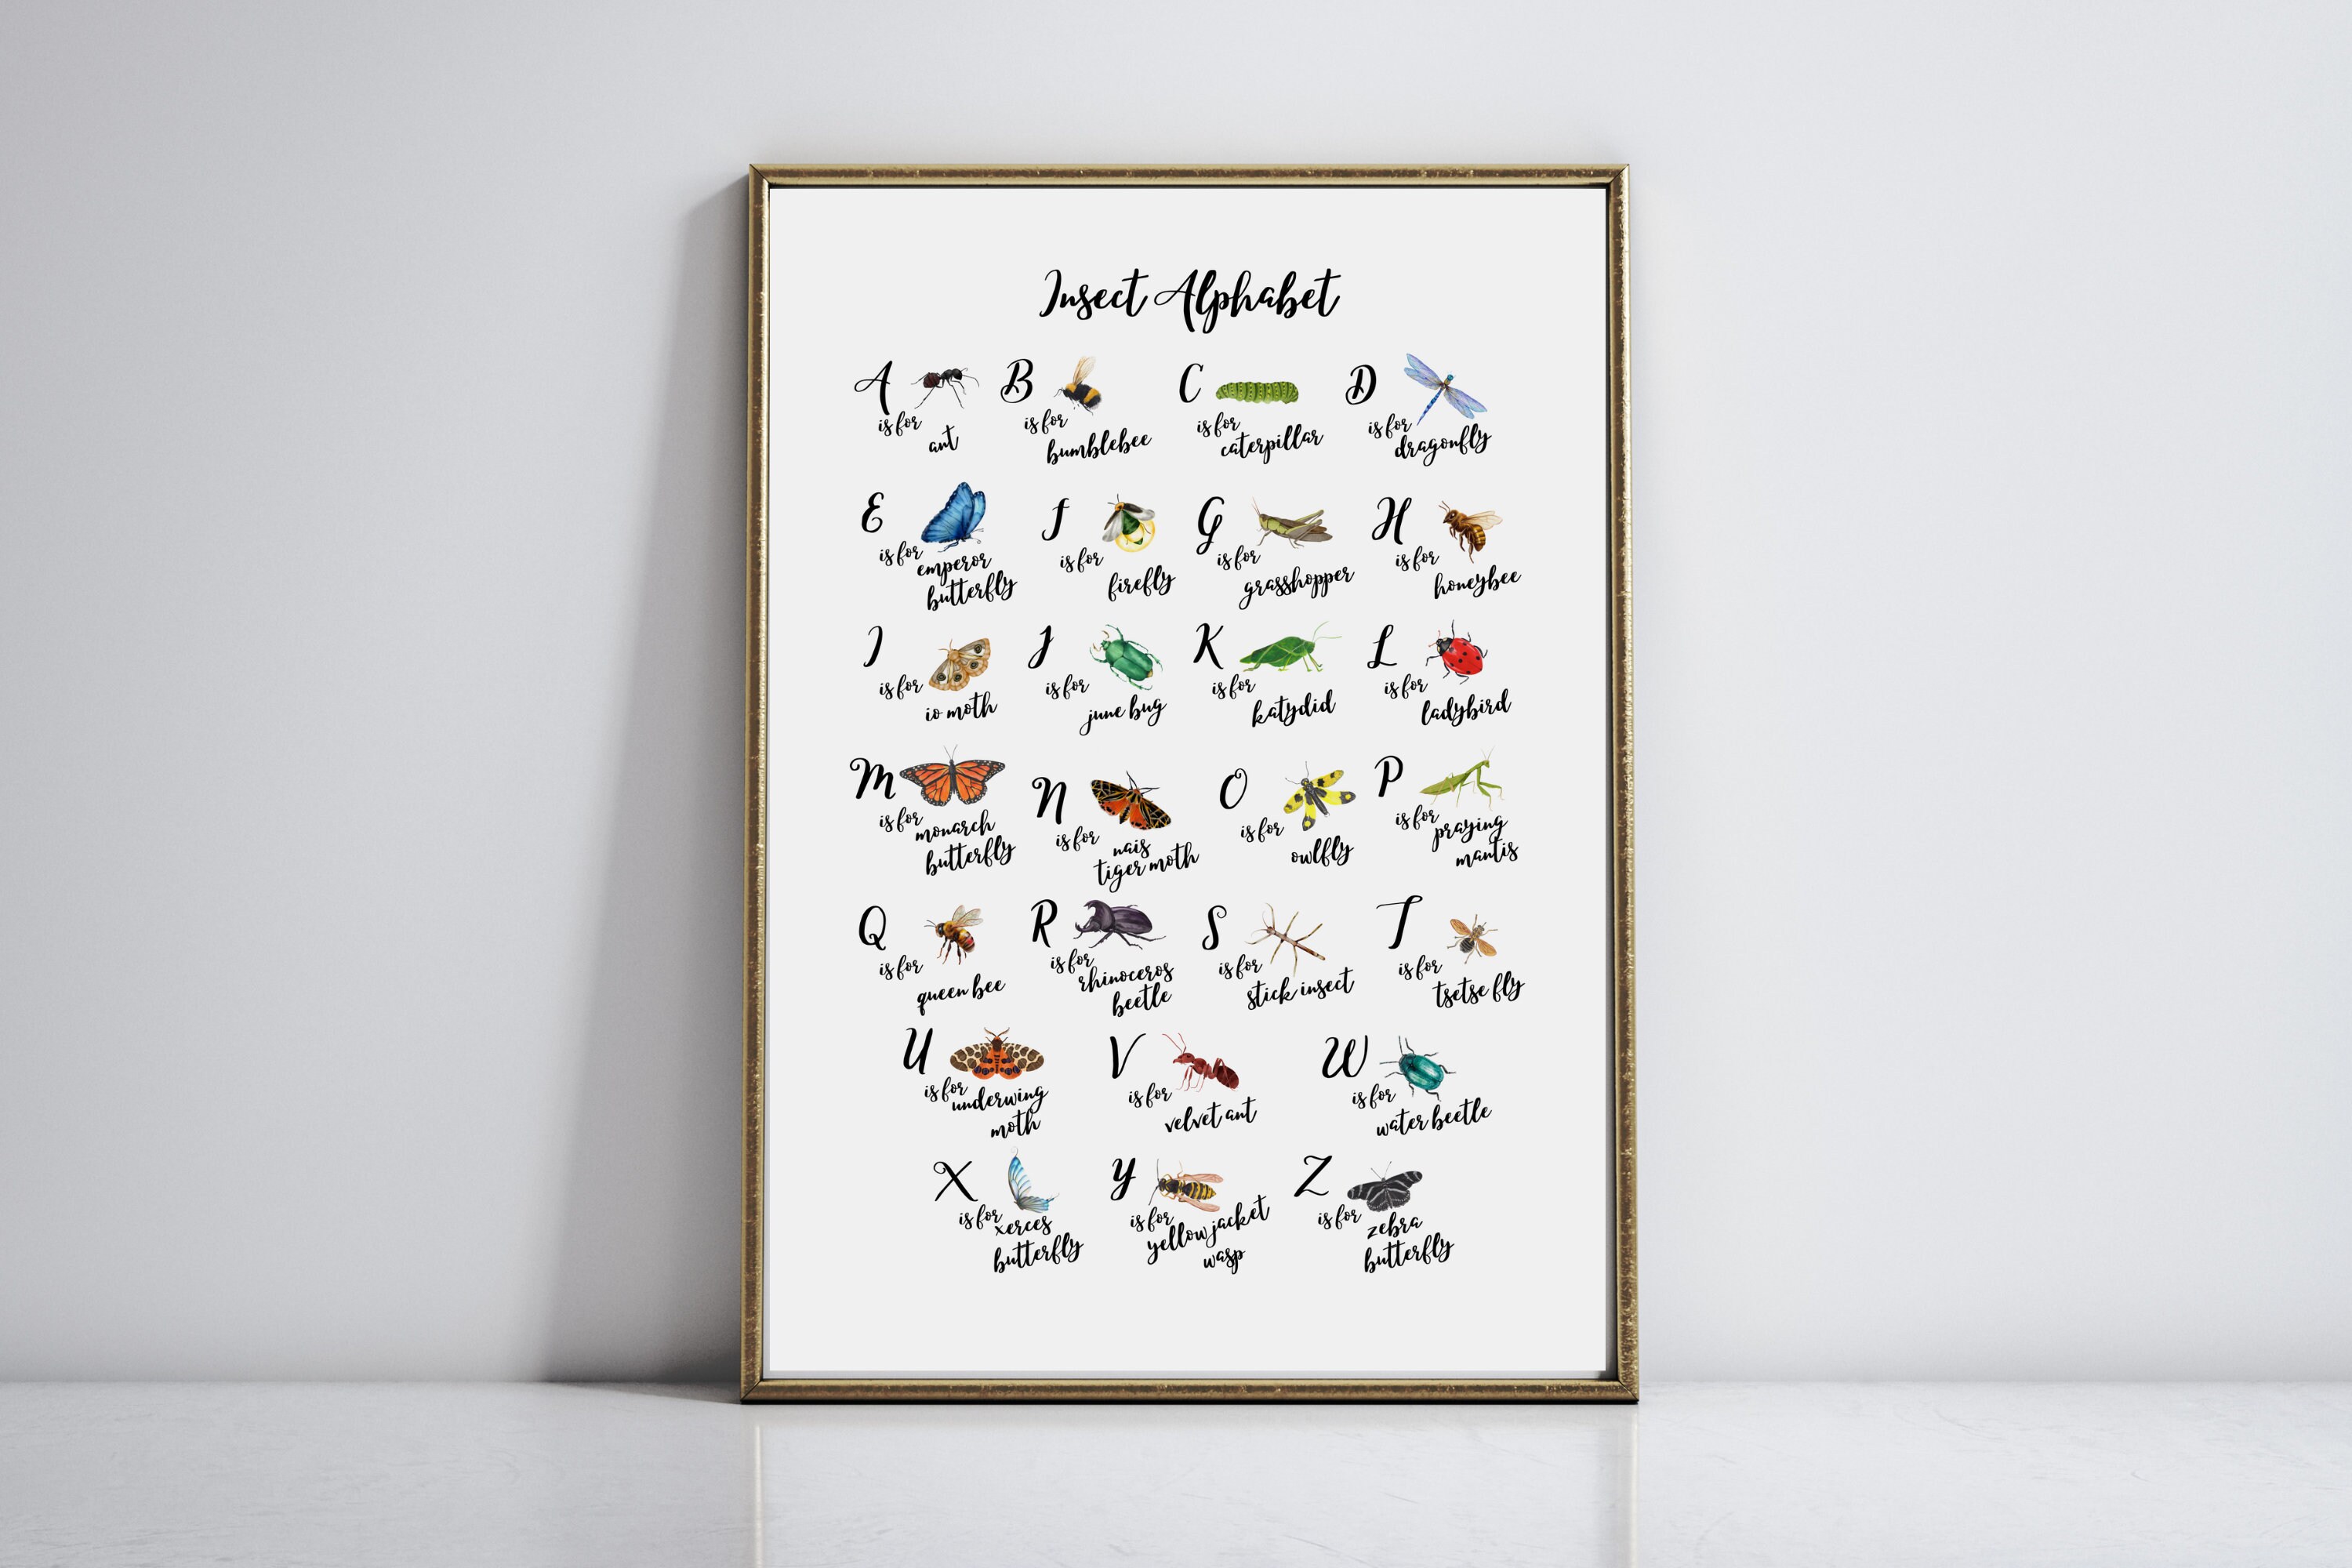 Insect Alphabet
A is for ant
B is for bumblebee
C is for caterpillar
D is for dragonfly
E is for emperor
butterfly
f is for firefly
G is for grasshopper
H is for honeybee
I is for io moth
J is for june bug
K is for katydid
L is for ladybird
M is for monarch
butterfly
N is for nais
tiger moth
O is for owlfly
P is for praying
mantis
Q is for queen bee
R is for rhinoceros
beetle
S is for stick insect
T is for tsetse fly
U is for underwing
moth
V is for velvet ant
W is for water beetle
X is for xerces
butterfly
y is for yellow jacket
wasp
Z is for zebra
butterfly